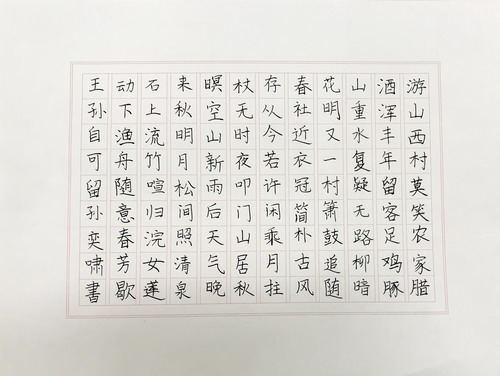 游山西村莫笑农家腊
酒浑丰年留客足鸡豚
山重水复疑无路柳暗
花明又一村箫鼓追随
春社近衣冠简朴古风
存从今若许闲乘月拄
杖无时夜叩门山居秋
暝空山新雨后天气晚
来秋明月松间照清泉
石上流竹喧归浣女莲
动下渔舟随意春芳歇
王孙自可留孙奕啸書